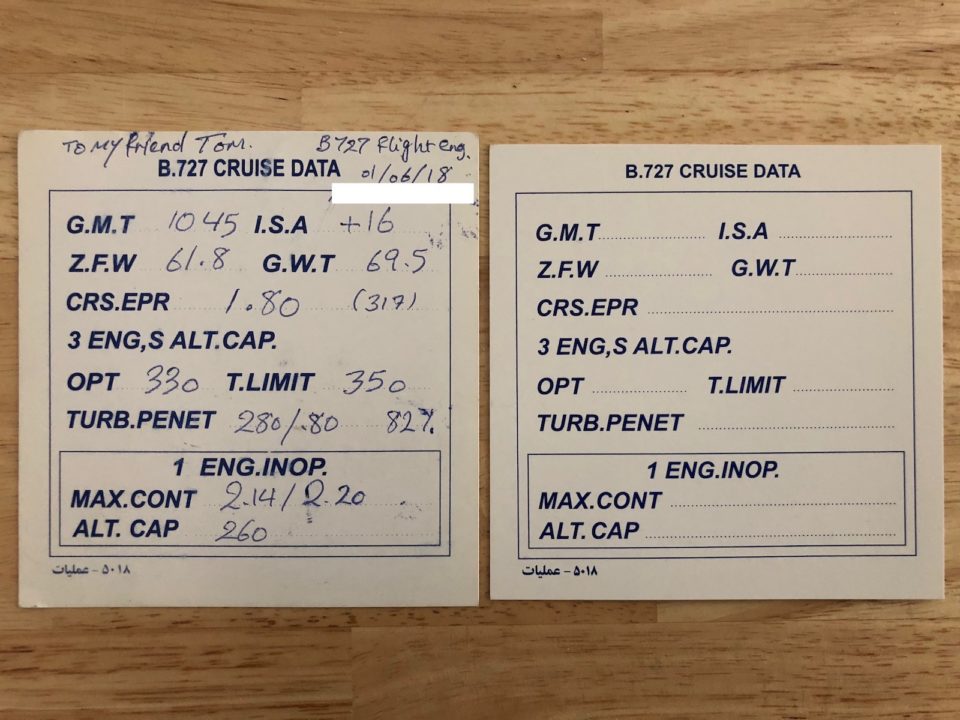 To My friend Tom. B727 Flight eng.
B.727 CRUISE DATA 01/06/18
G.M.T 1045 I.S.A +16
Z.F.W 61.8 G.W.T 69.5
CRS.EPR 1.80 (317)
3 ENG,S ALT.CAP.
OPT 330 T.LIMIT 350
TURB.PENET 280/.80 82%
1 ENG.INOP.
MAX.CONT 2.14/2.20
ALT. CAP 260
۵۰۱۸ – عملیات
B.727 CRUISE DATA
G.M.T I.S.A
Z.F.W G.W.T
CRS.EPR
3 ENG,S ALT.CAP.
OPT T.LIMIT
TURB.PENET
1 ENG.INOP.
MAX.CONT
ALT. CAP
۵۰۱۸ – عملیات